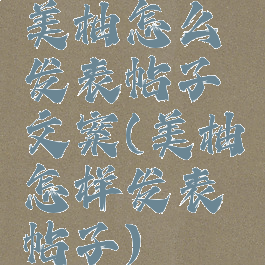 美柚怎么
发表帖子
文案(美柚
怎样发表
帖子)